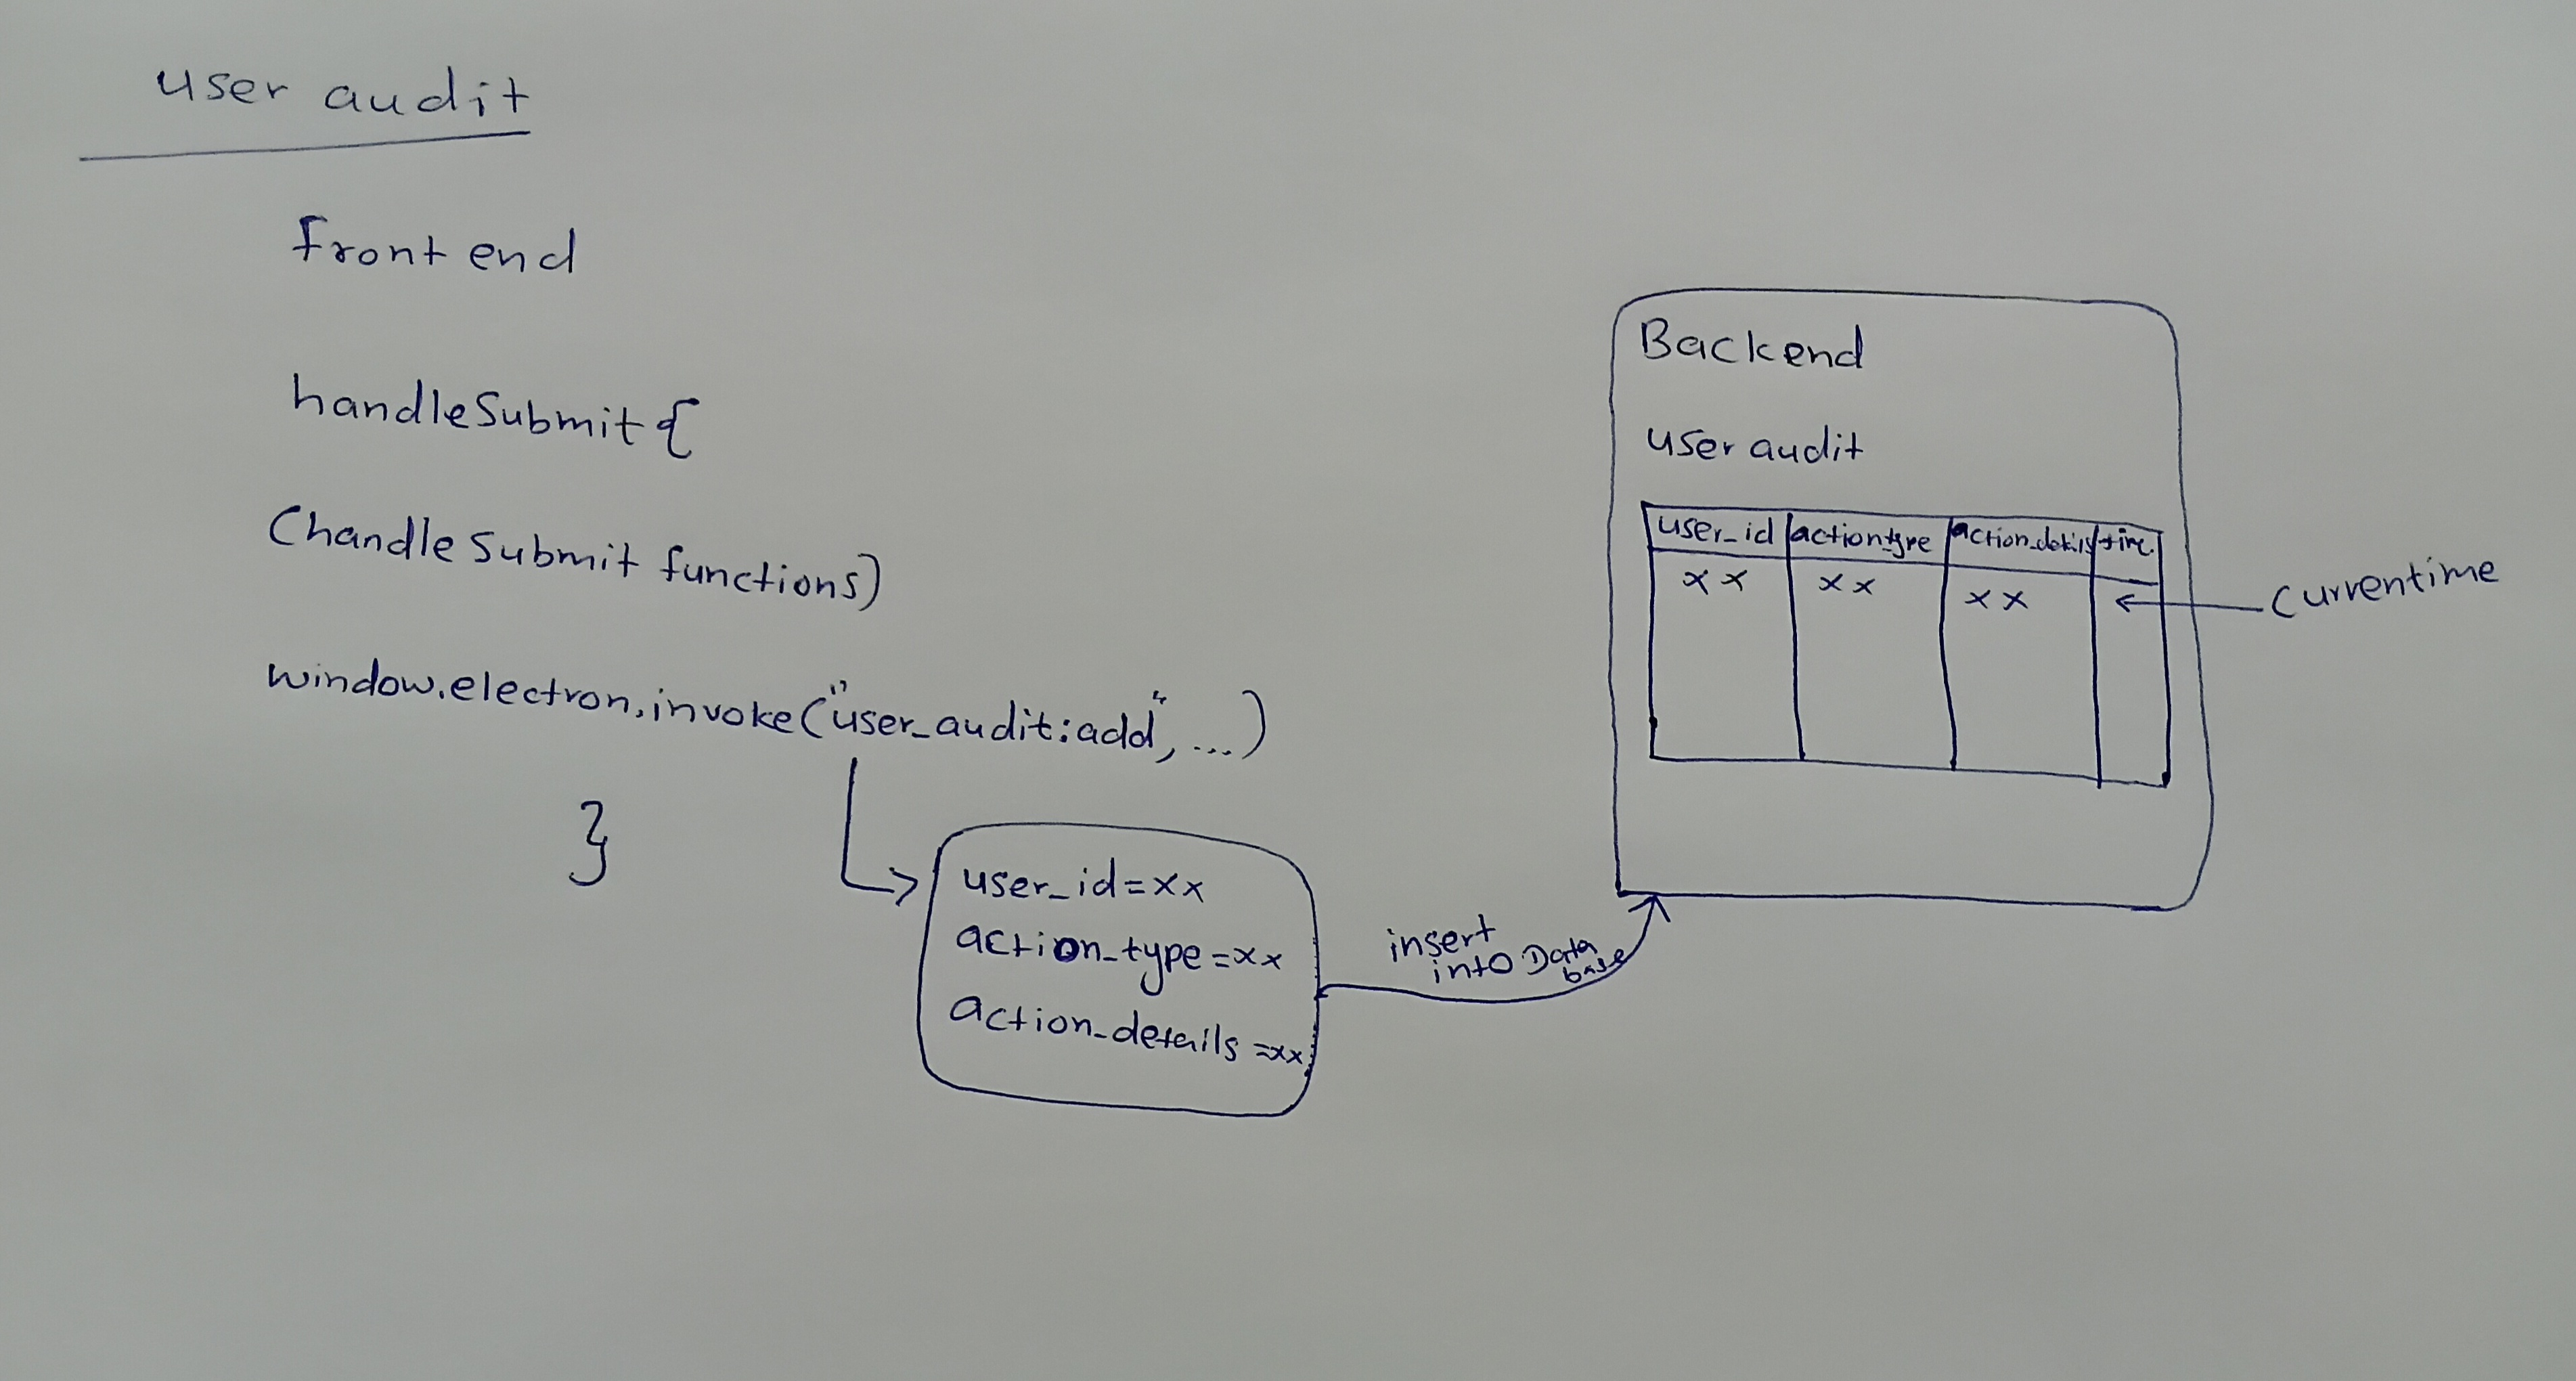 user audit
front end
handleSubmit {
(handle Submit functions)
window.electron.invoke("user_audit:add", ...)
}
user_id=xx
action_type=xx
action_details=xx
insert
into Data
base
Backend
user audit
user_id action_type action_details time
xx xx xx
currentime